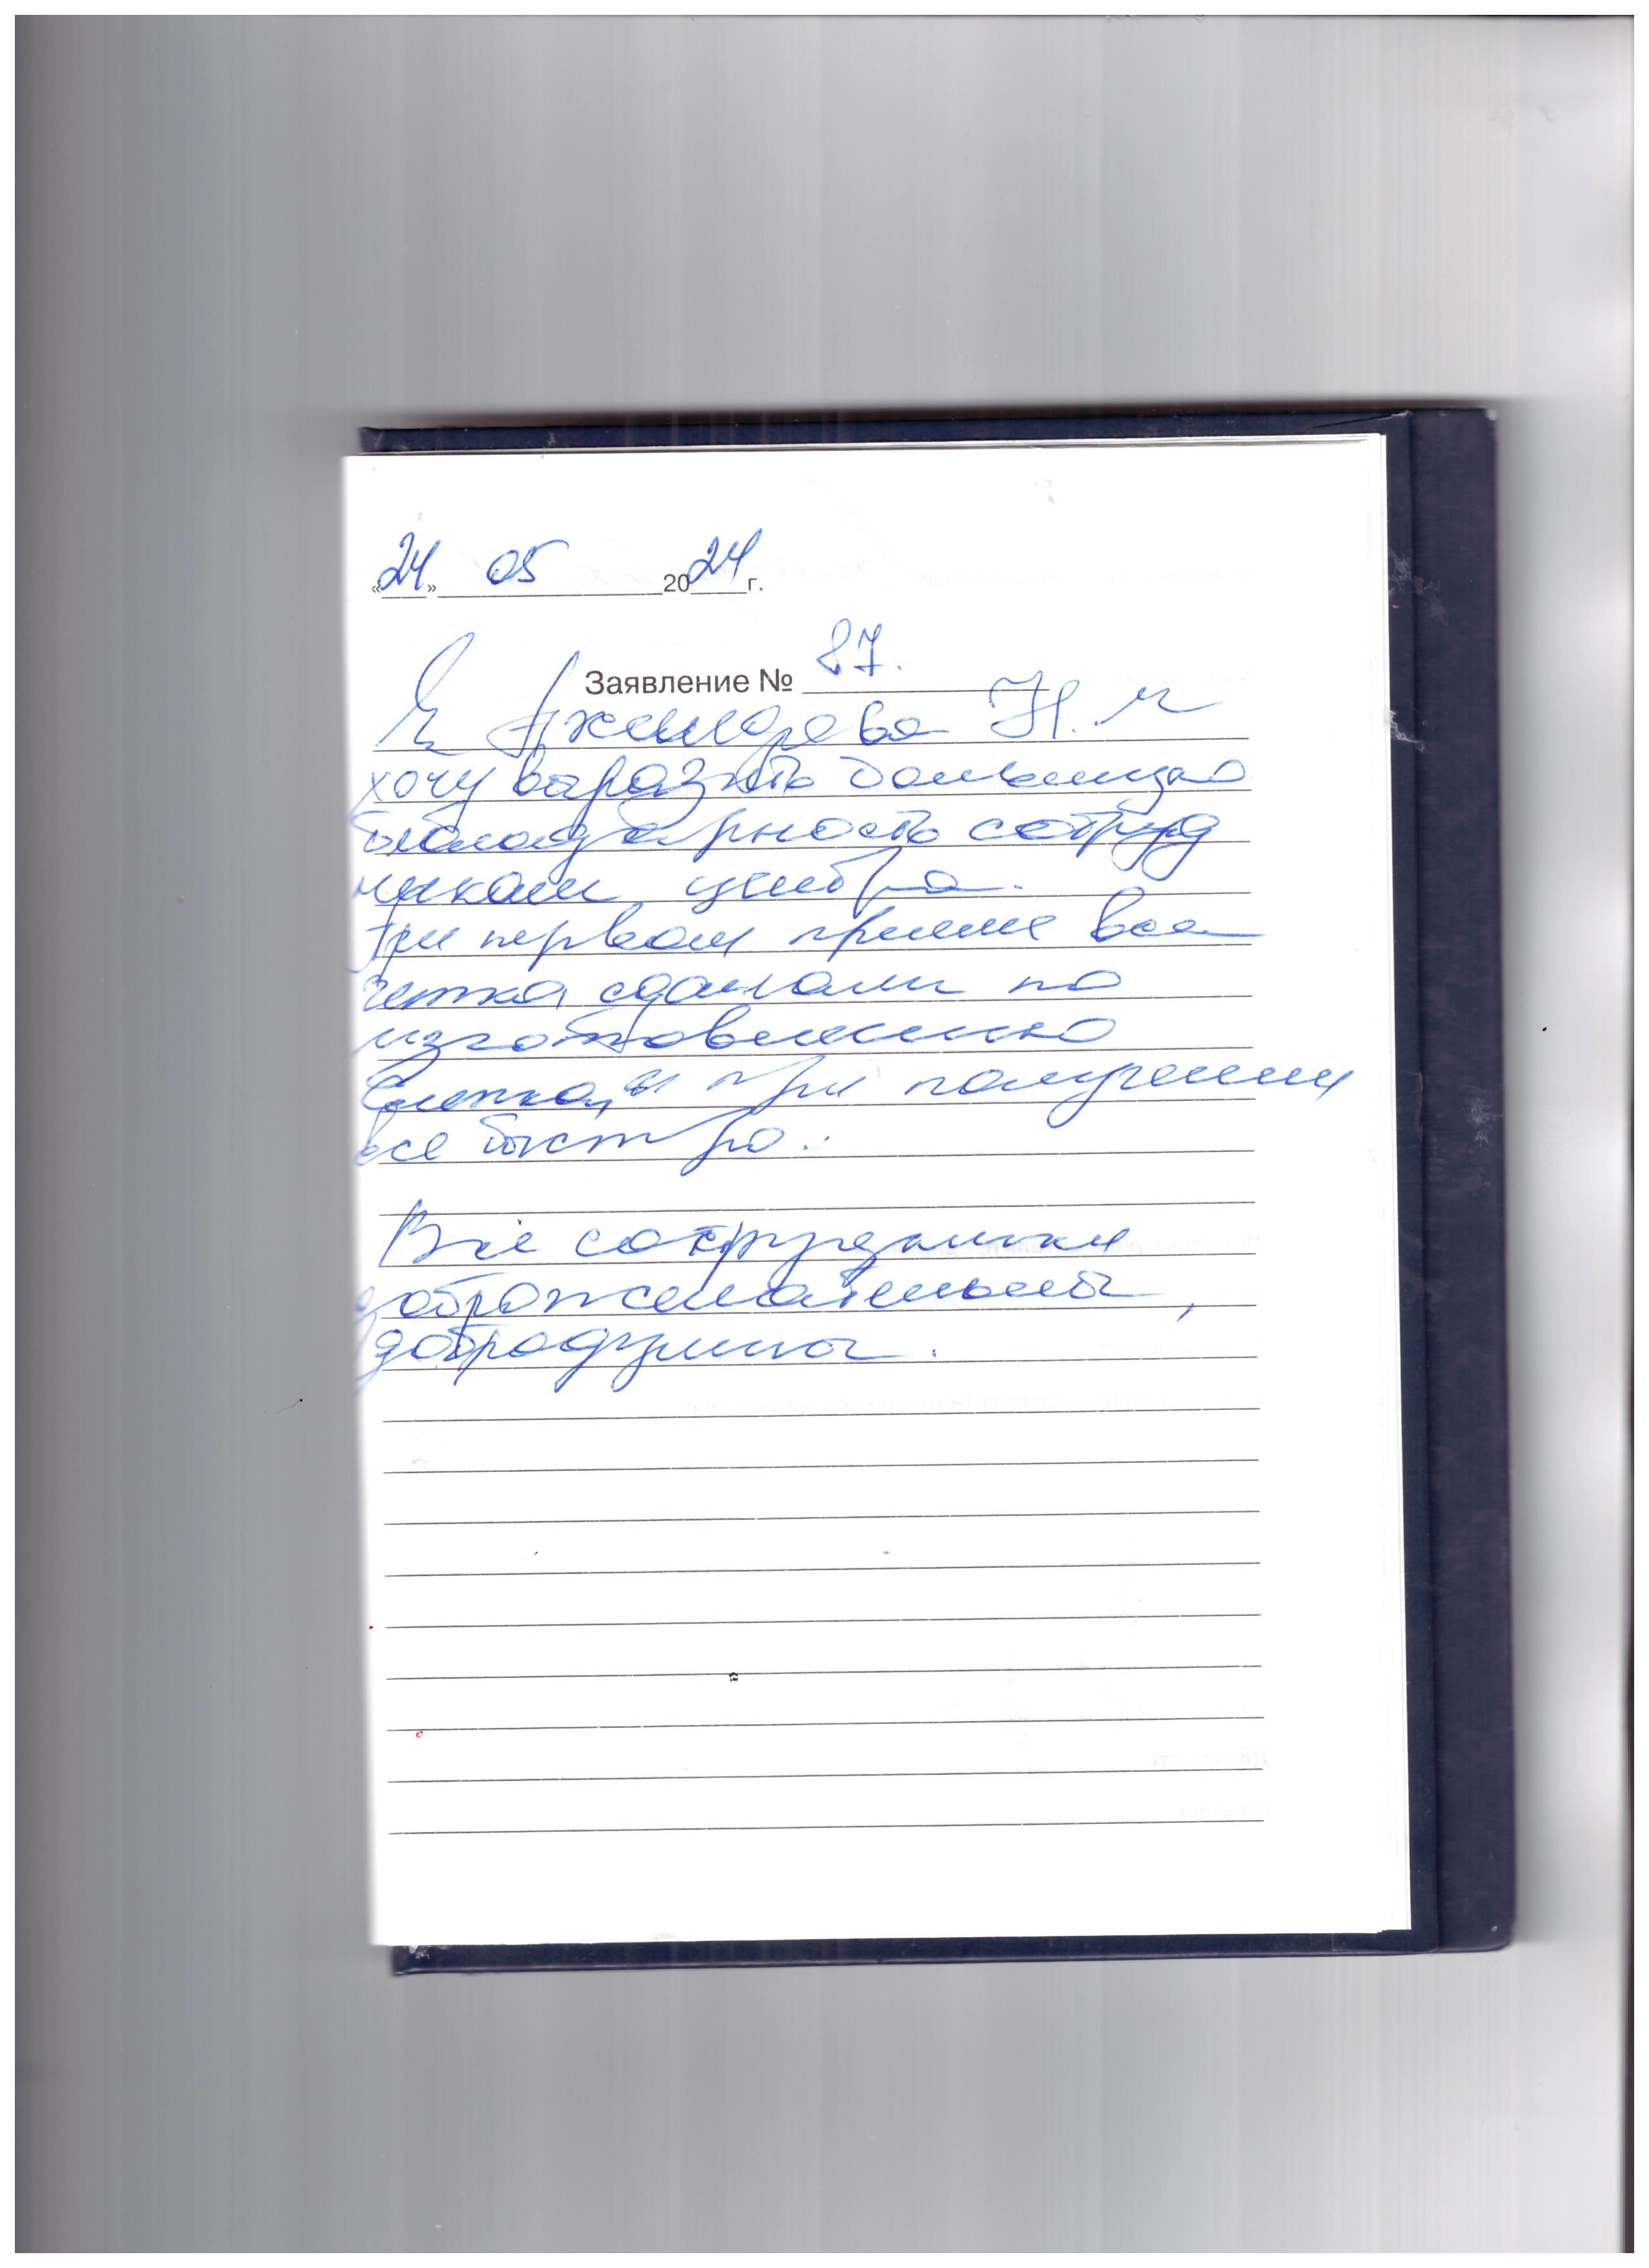 «24» 05 2024 г.
Заявление № 87.
Я Н. М
хочу выразить большую
благодарность сотруд
никам центра.
При первом приеме все
четко, сделали по
изготовлению
и при получении
все быстро.
Все сотрудники
доброжелательны,
добродушны.